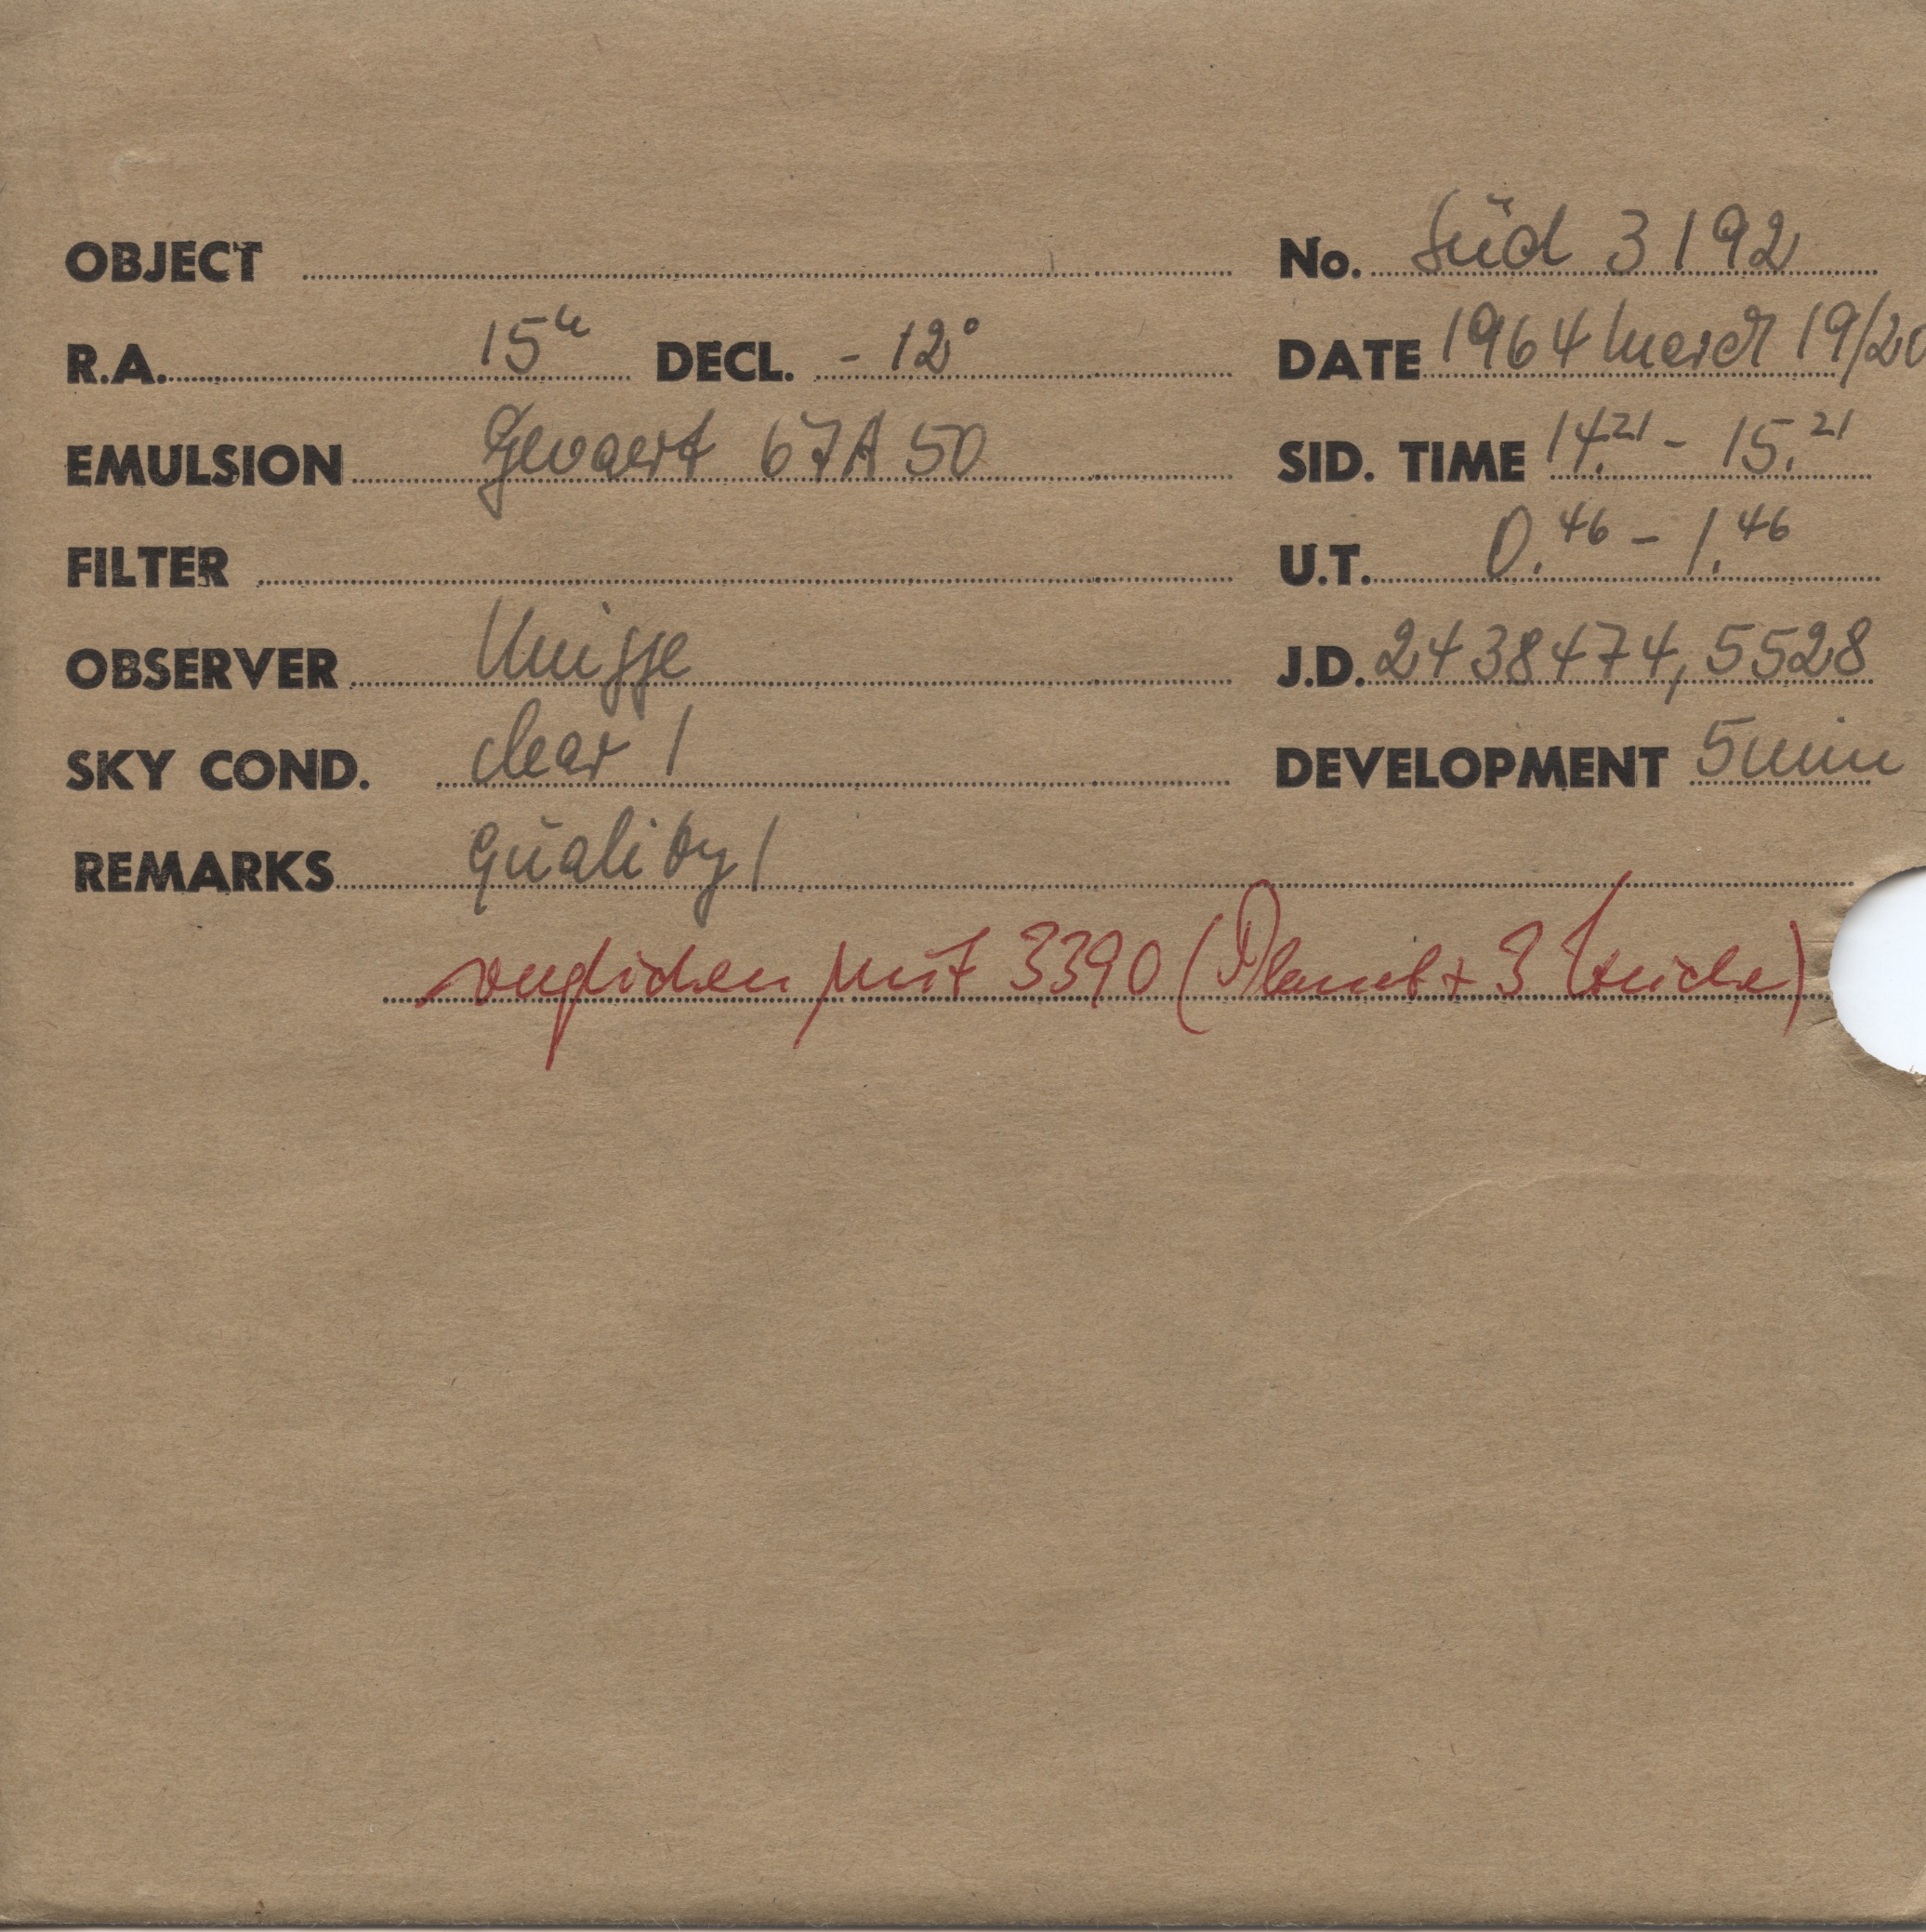 OBJECT No. Süd 3192
R.A. 15h DECL. - 12° DATE 1964 March 19/20
EMULSION Gevaert 67A50 SID. TIME 14.21 - 15.21
FILTER U.T. 0.46 - 1.46
OBSERVER J.D. 2438474,5528
SKY COND. clear 1 DEVELOPMENT 5 min
REMARKS quality 1
verglichen mit 3390 (Planet + 3 )